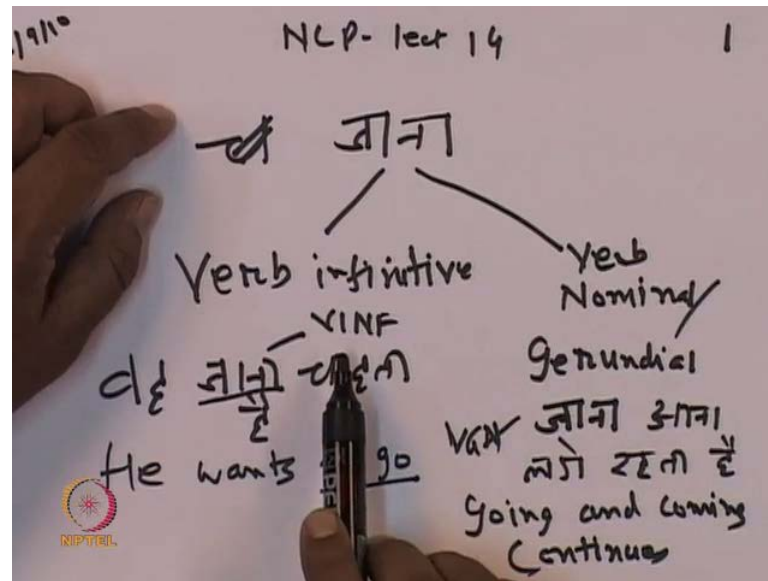 9/10 NCP- lect 14 1
जाना
Verb infinitive
Verb Nominal/
VINF
Gerundial
वह जाना चाहता है
VGN जाना आना
लगे रहता है
He wants go
going and coming
Continues
NPTEL